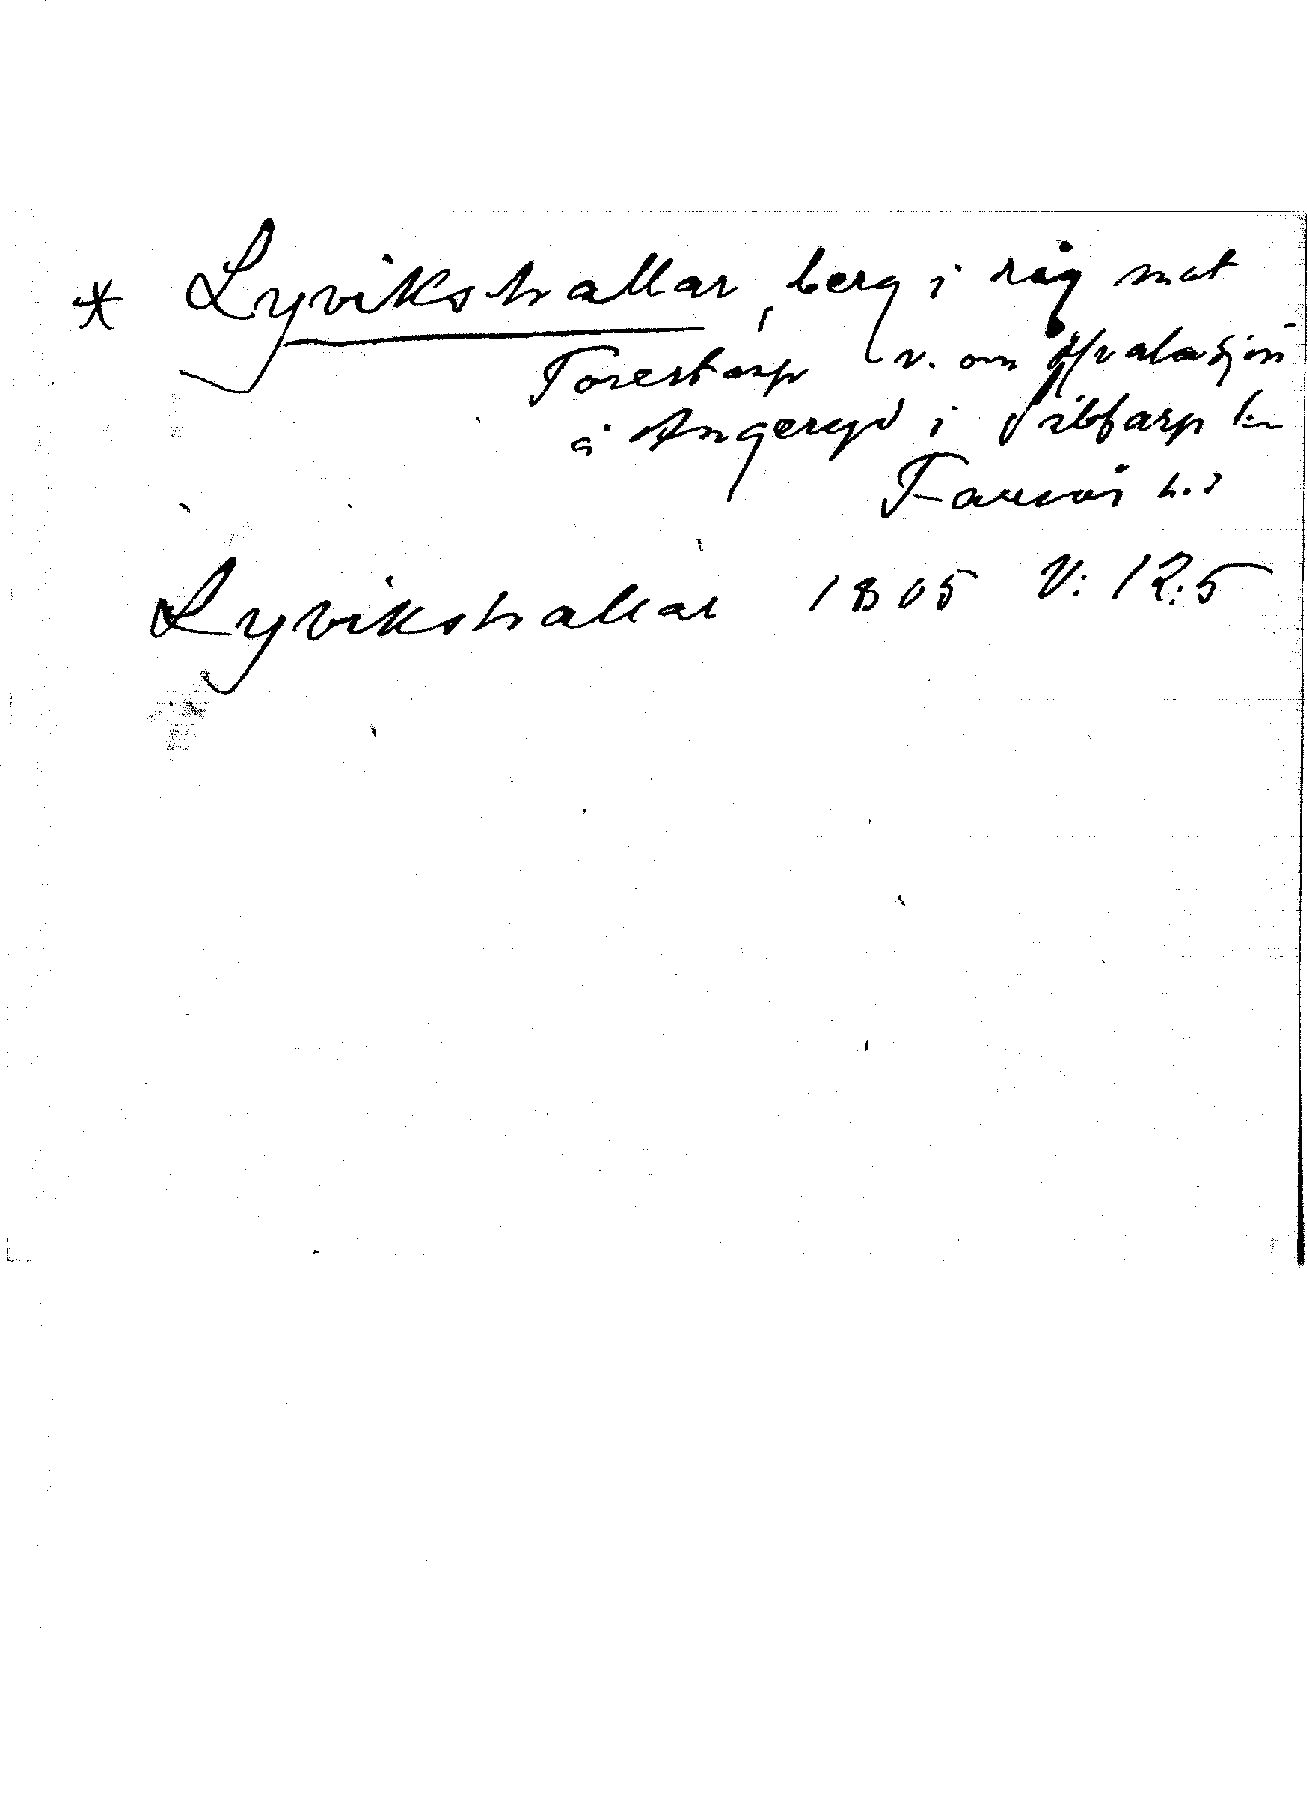 * Lyvikshallar, berg i råg mot
Torestorp v. om Hvalasjön
å Angeryd i Sibbarp sn
Faurås h.
Lyvikshallar 1805 V: 12:5